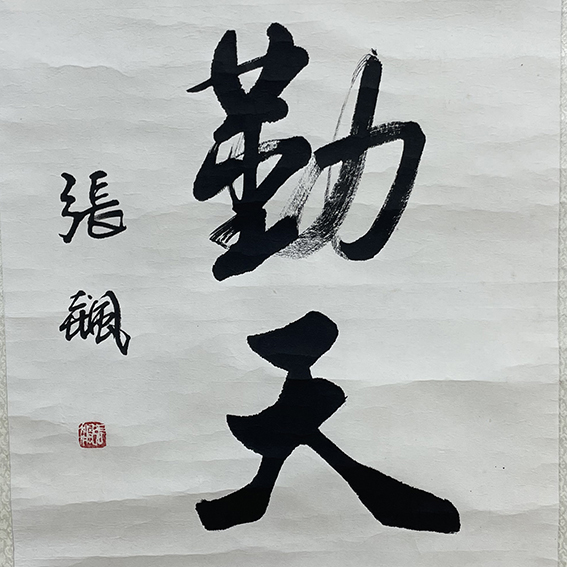 勤天
張飆